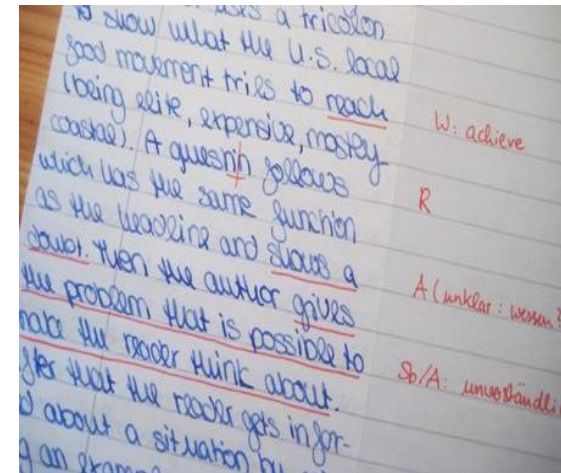 uses a tricolon
to show what the U.S. local
food movement tries to reach
(being elite, expensive, mostly
coastal). A questin follows
which has the same function
as the headline and shows a
doubt. Then the author gives
the problem that is possible to
make the reader think about.
After that the reader gets infor-
about a situation by
an
W: achieve
R
A (unklar: wessen?
Sb/A: unverständli